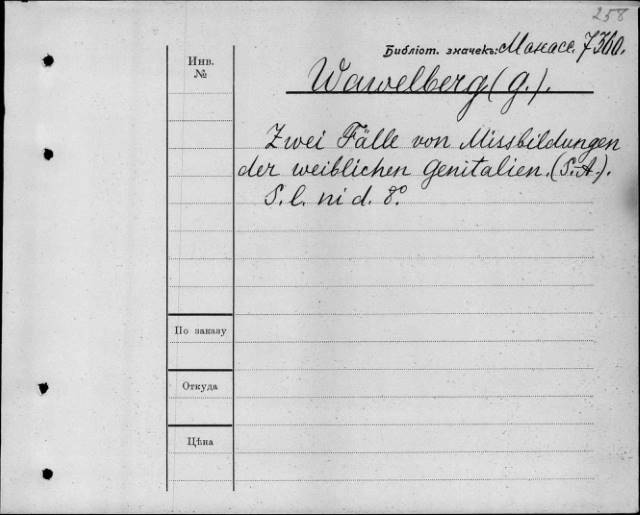 258
Библіот. значекъ: Манасс. 7360.
Инв.
№
Wawelberg (G.).
Zwei Fälle von Missbildungen
der weiblichen Genitalien. (S.-A.).
S. l. ni d. 8°.
По заказу
Откуда
Цѣна